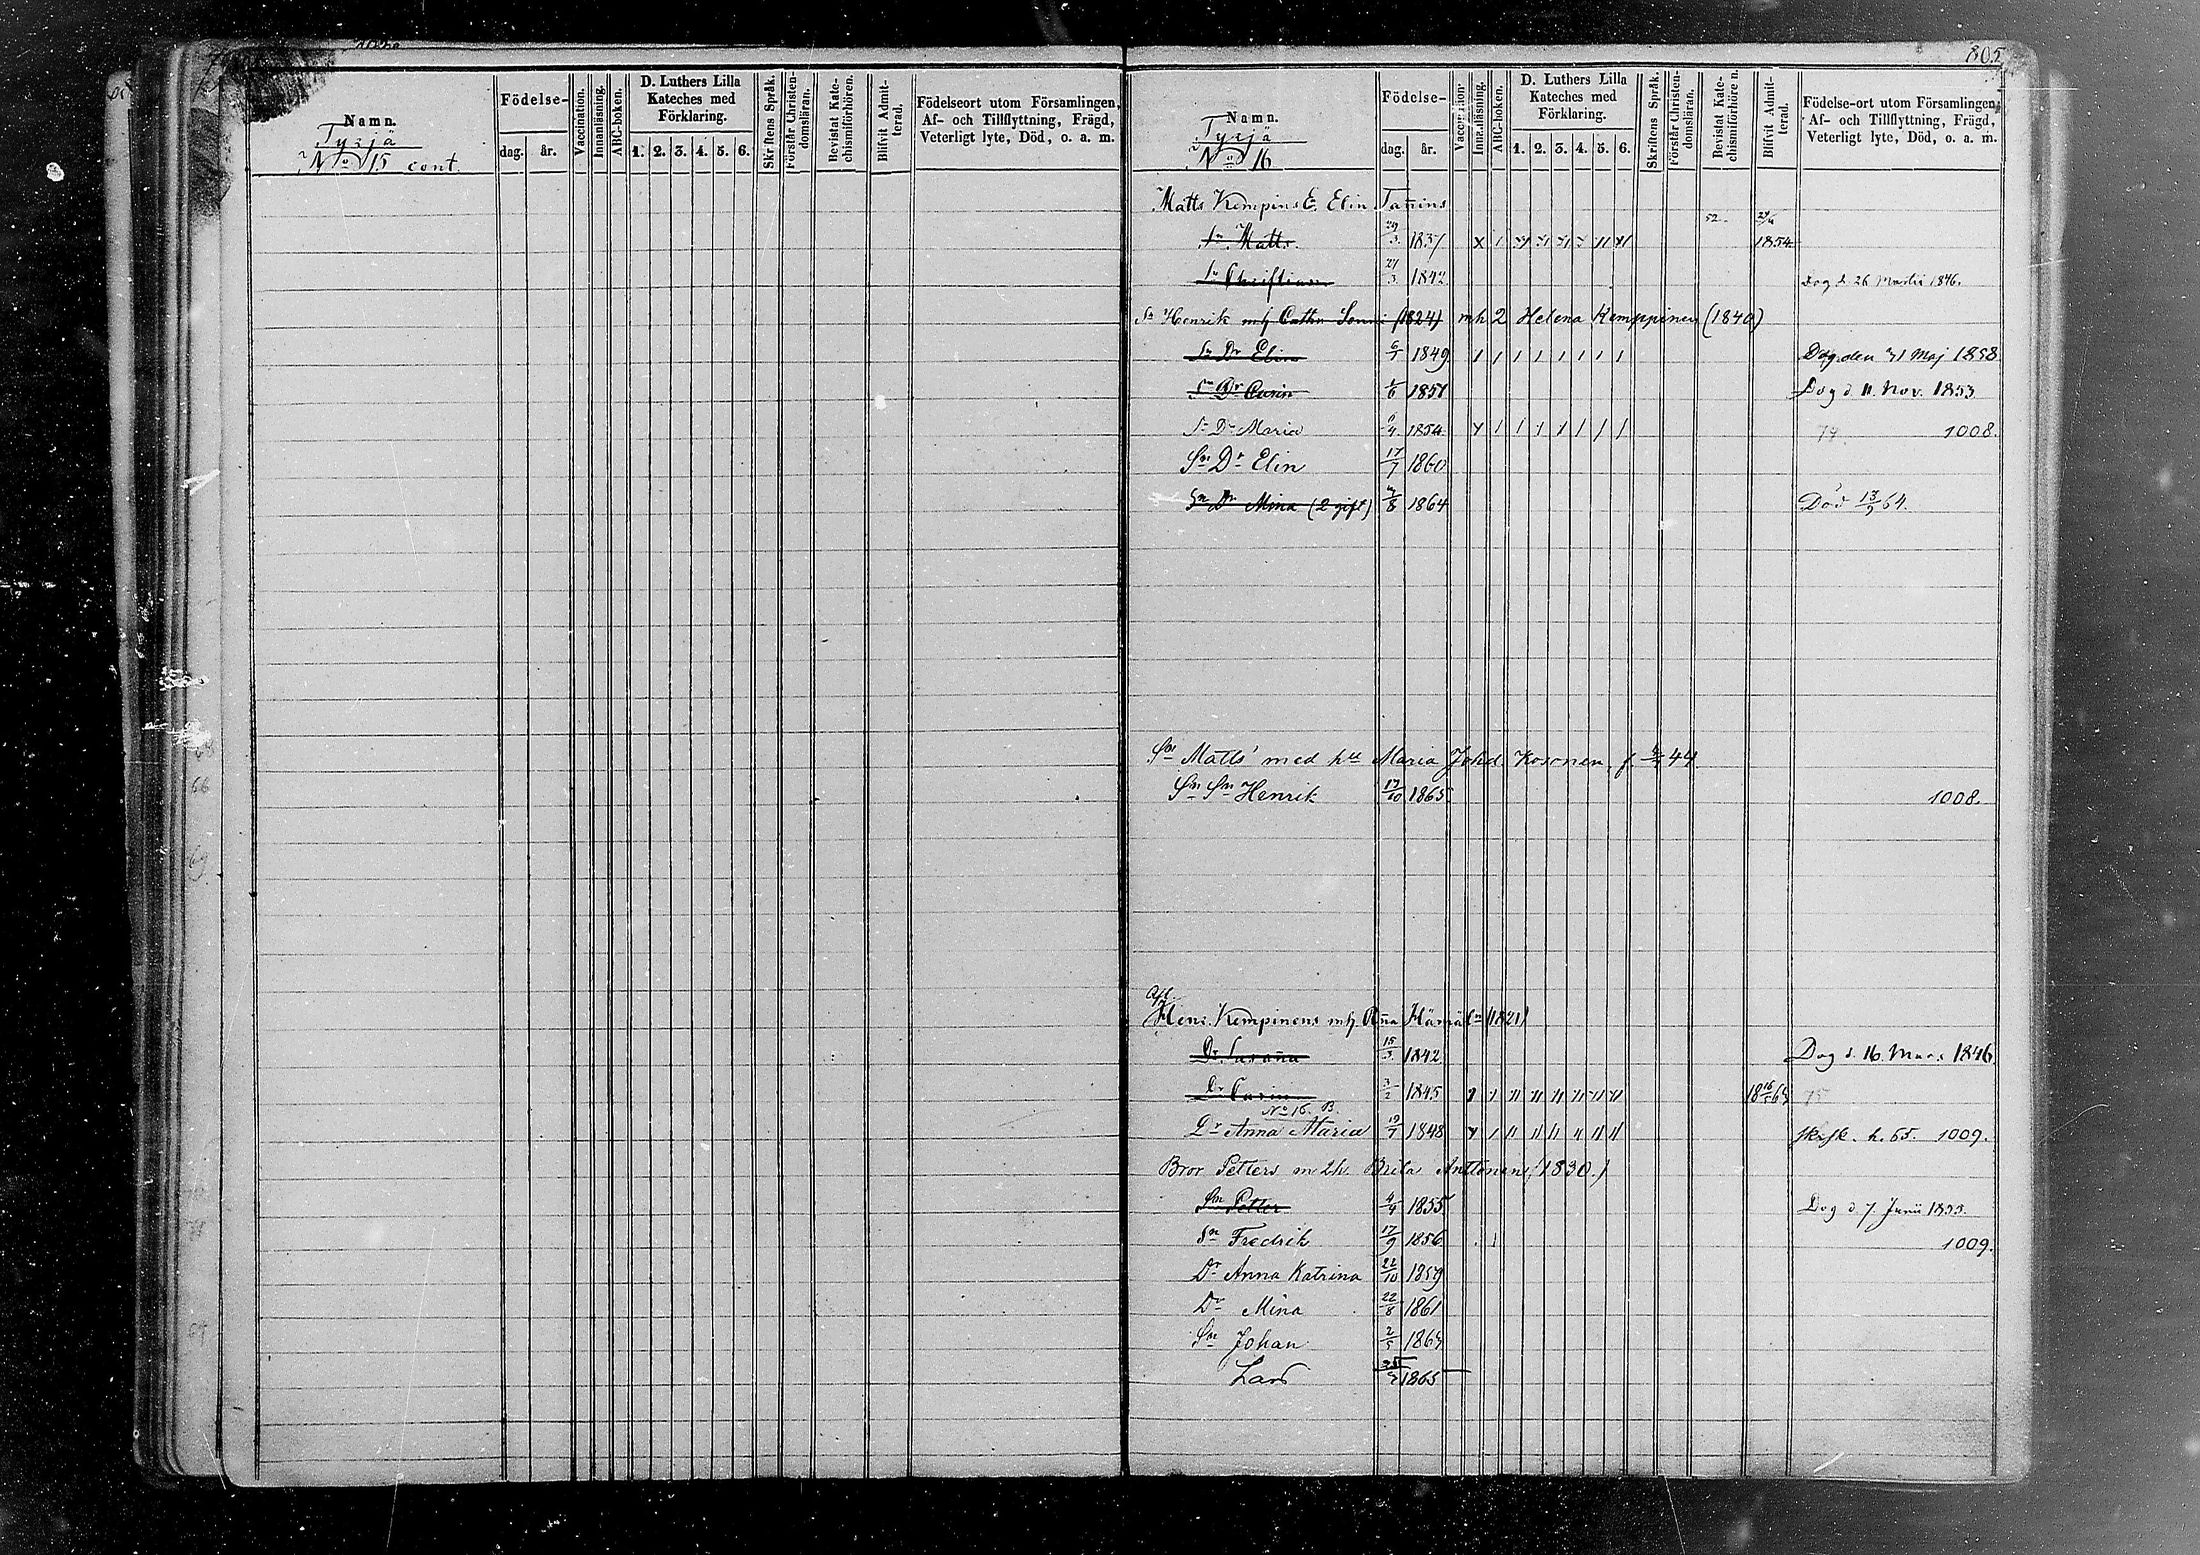 805
Namn.
Tyrjä
No 15 cont.
Födelse-
dag. år.
Vaccination.
Innanläsning.
ABC-boken.
D. Luthers Lilla
Kateches med
Förklaring.
1. 2. 3. 4. 5. 6.
Skriftens Språk.
Förstår Christen-
domsläran.
Bevistat Kate-
chismiförhören.
Blifvit Admit-
terad.
Födelseort utom Församlingen,
Af- och Tillflyttning, Frägd,
Veterligt lyte, Död, o. a. m.
Namn.
Tyrjä
No 16
Födelse-
dag. år.
Vaccination.
Innanläsning.
ABC-boken.
D. Luthers Lilla
Kateches med
Förklaring.
1. 2. 3. 4. 5. 6.
Skriftens Språk.
Förstår Christen-
domsläran.
Bevistat Kate-
chismiförhören.
Blifvit Admit-
terad.
Födelse-ort utom Församlingen,
Af- och Tillflyttning, Frägd,
Veterligt lyte, Död, o. a. m.
Matts Kempins E. Elin Tanins
Sn Matts 29/3 1837 52 1854
Sn Christian 27/3 1842 Dog d. 26 Martii 1846.
Sn Henrik mh Cathr (1824) mh 2 Helena Kemppinen (1840)
Sn Dr Elin 6/7 1849 Dog den 31 Maj 1858.
Sn Dr Carin 1/6 1851 Dog d. 11. Nov. 1853
Sn Dr Maria 1854 1008.
Sn Dr Elin 17/7 1860
Sn Dr Mina (2 gift) 1864 Död 13/9 64.
Sn Matts' med h Maria Johd. Kosonen, f. 44
Sn Sn Henrik 17/10 1865 1008.
Afl
Henr. Kempinens mh Anna (1821)
Dr Susanna 15/3 1842 Dog d. 16. Mars 1846
Dr Carin 3/2 1845
No 16. B.
Dr Anna Maria 19/7 1848 1009.
Bror Petters m 2 h. Brita Anttonen (1830.)
Sn Petter 4/4 1855 Dog d. 7. Junii 1855.
Sn Fredrik 17/9 1856 1009.
Dr Anna Katrina 22/10 1859
Dr Mina 22/8 1861
Sn Johan 2/5 1864
Lars 1865